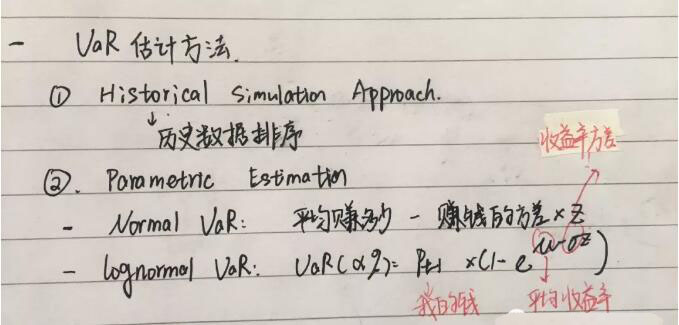 - VaR 估计方法.
① Historical Simulation Approach.
↓
历史数据排序
收益率方差
②. Parametric Estimation
- Normal VaR: 平均赚多少 - 赚钱的方差×Z
- lognormal VaR: VaR(α%)= Pt-1 ×(1-e^μ-σZ)
我的钱 平均收益率